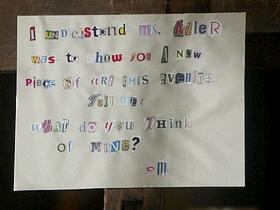 I UNDERstand ms. AdleR
was to show you A New
Piece Of art THIS EVENING.
Tell me:
WHAT do yoU Think
of MINE?
-m